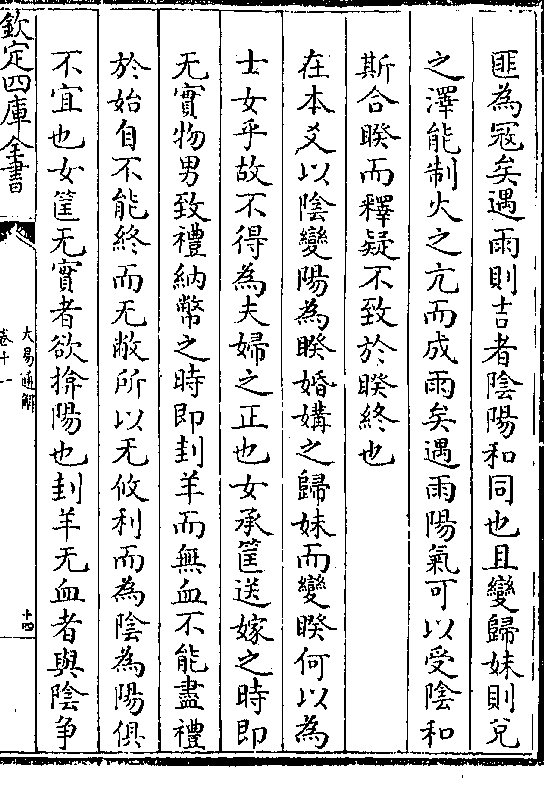 匪為冦矣遇雨則吉者陰陽和同也且變歸妹則兌
之澤能制火之亢而成雨矣遇雨陽氣可以受陰和
斯合睽而釋疑不致於睽終也
在本爻以陰變陽為睽婚媾之歸妹而變睽何以為
士女乎故不得為夫婦之正也女承筐送嫁之時即
无實物男致禮納幣之時即刲羊而無血不能盡禮
於始自不能終而无敝所以无攸利而為陰為陽俱
不宜也女筐无實者欲揜陽也刲羊无血者與陰争
欽定四庫全書
大易通解
卷十一
十四